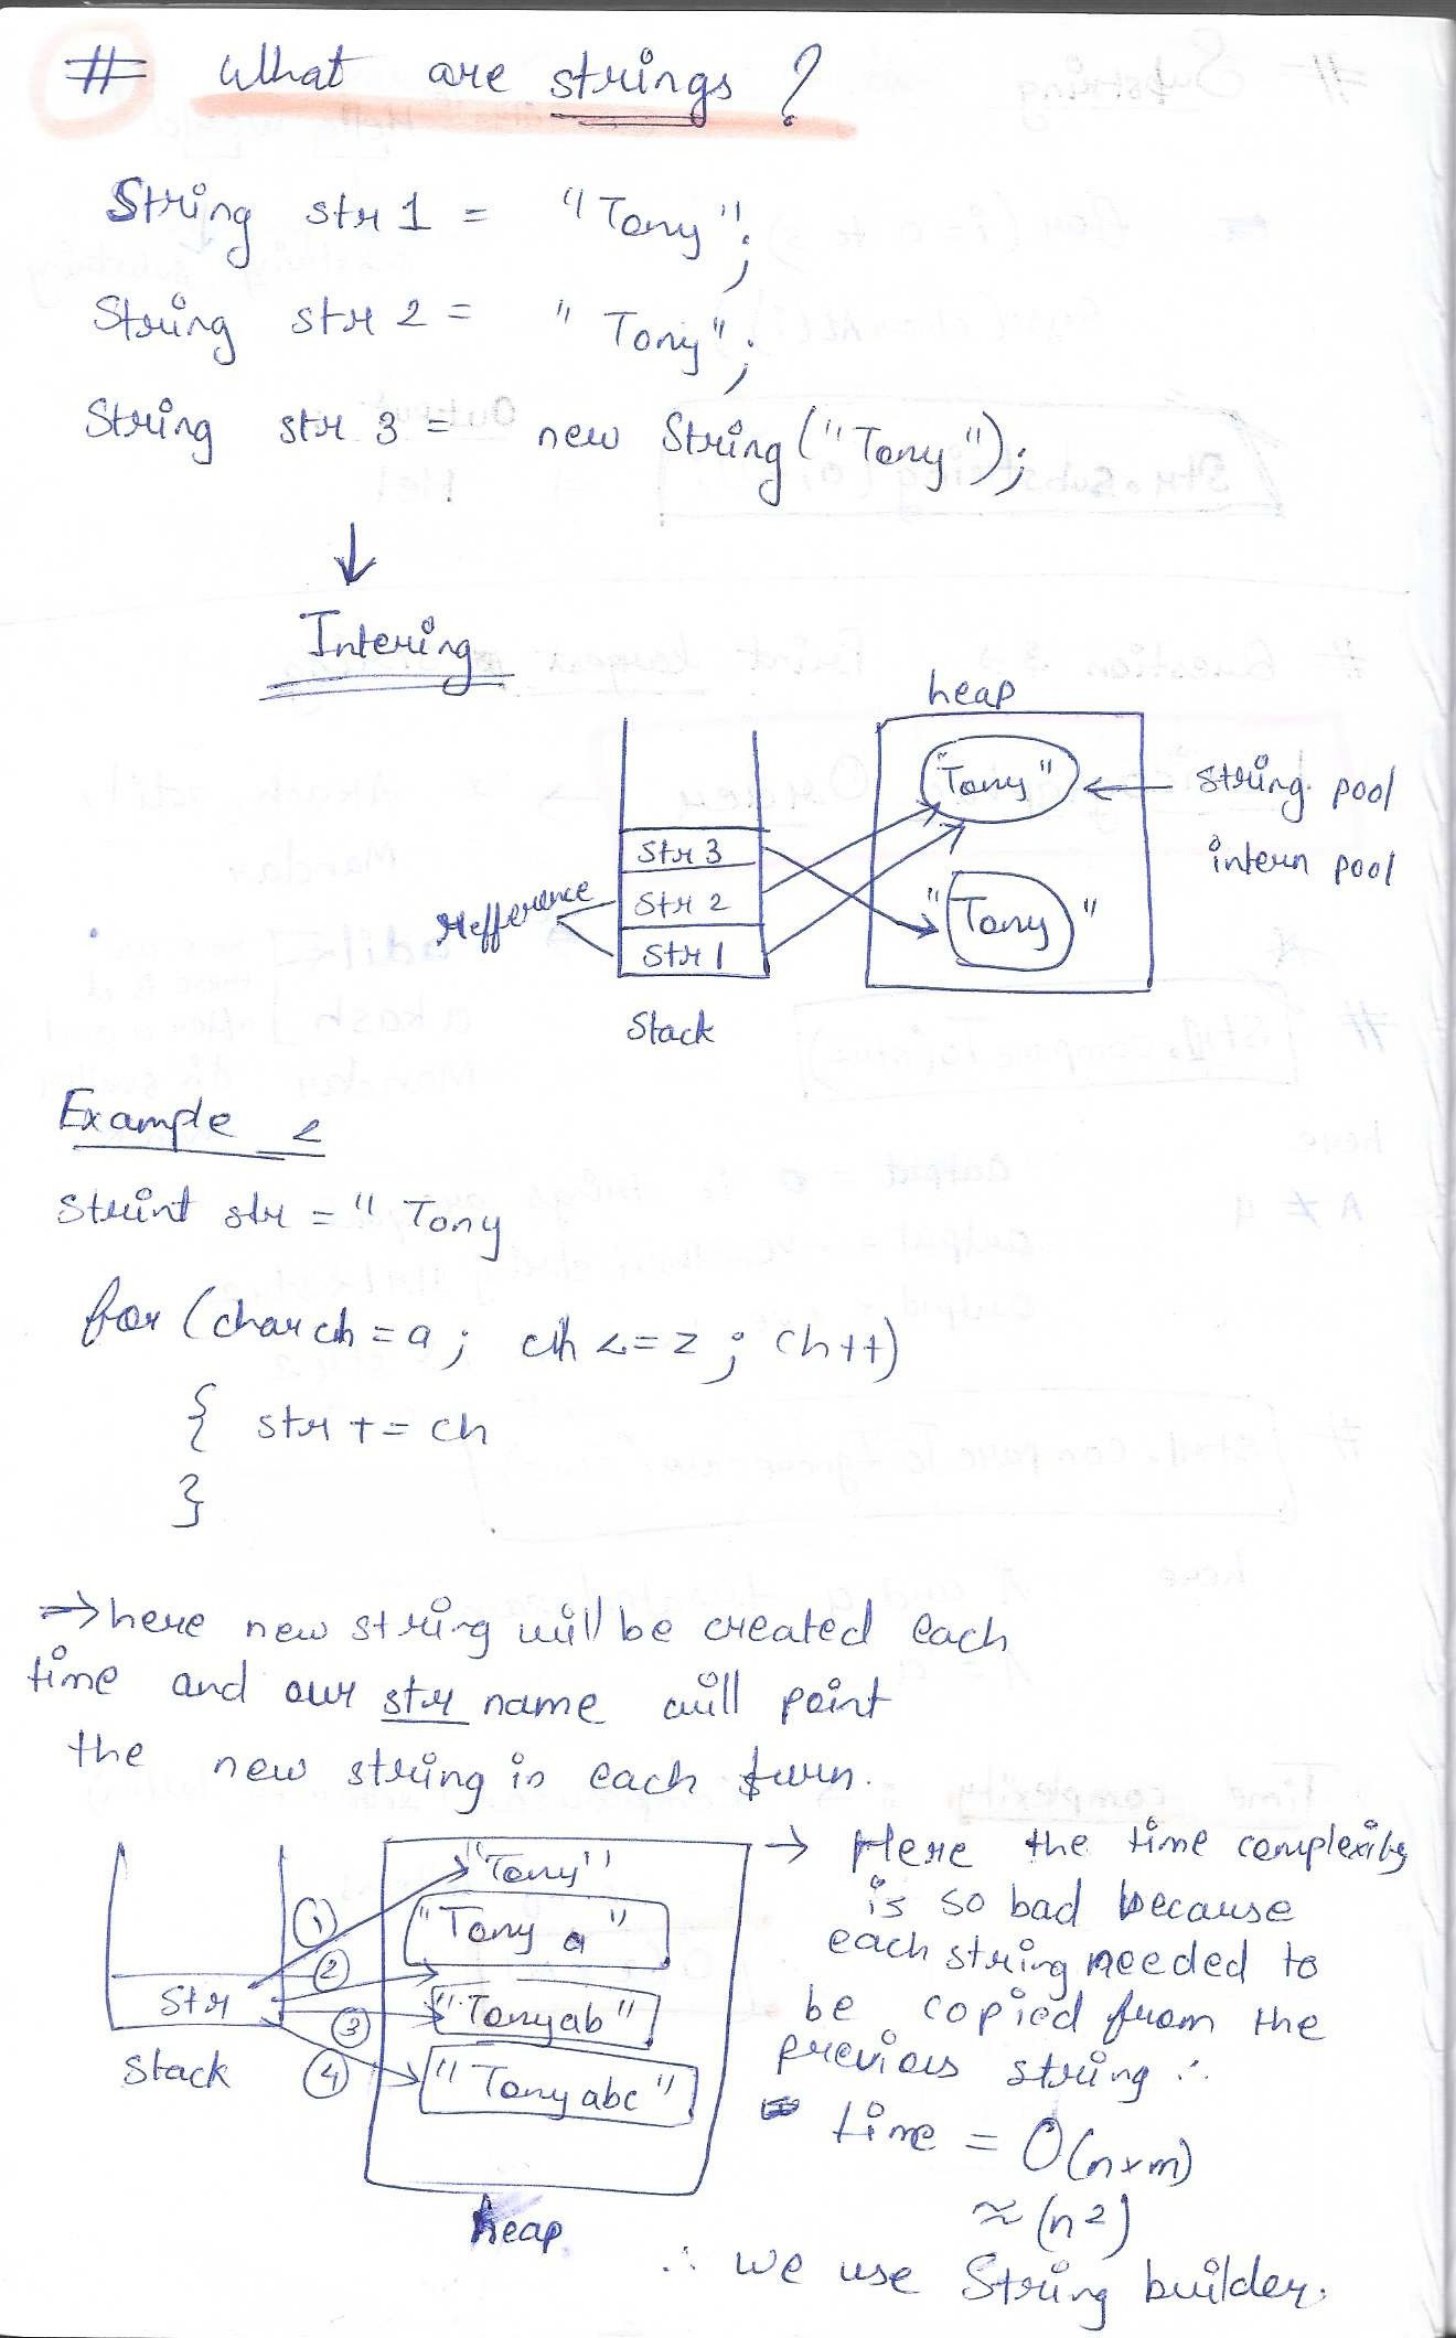 # What are strings ?
String str1 = "Tony";
String str 2 = "Tony";
String str 3 = new String("Tony");
↓
Intering
heap
"Tony" ← string pool
intern pool
str 3
str 2
str 1
refference
"Tony"
Stack
Example 2
Strint str = " Tony
for (char ch = a ; ch <= z ; ch++)
{ str += ch
}
⇒ here new string will be created each
time and our str name will point
the new string in each turn.
"Tony"
"Tony a"
"Tonyab"
"Tonyabc"
① ② ③ ④
Str
Stack
heap
→ Here the time complexity
is so bad because
each string needed to
be copied from the
previous string ∴
time = O(n×m)
≈ (n²)
∴ we use String builder.